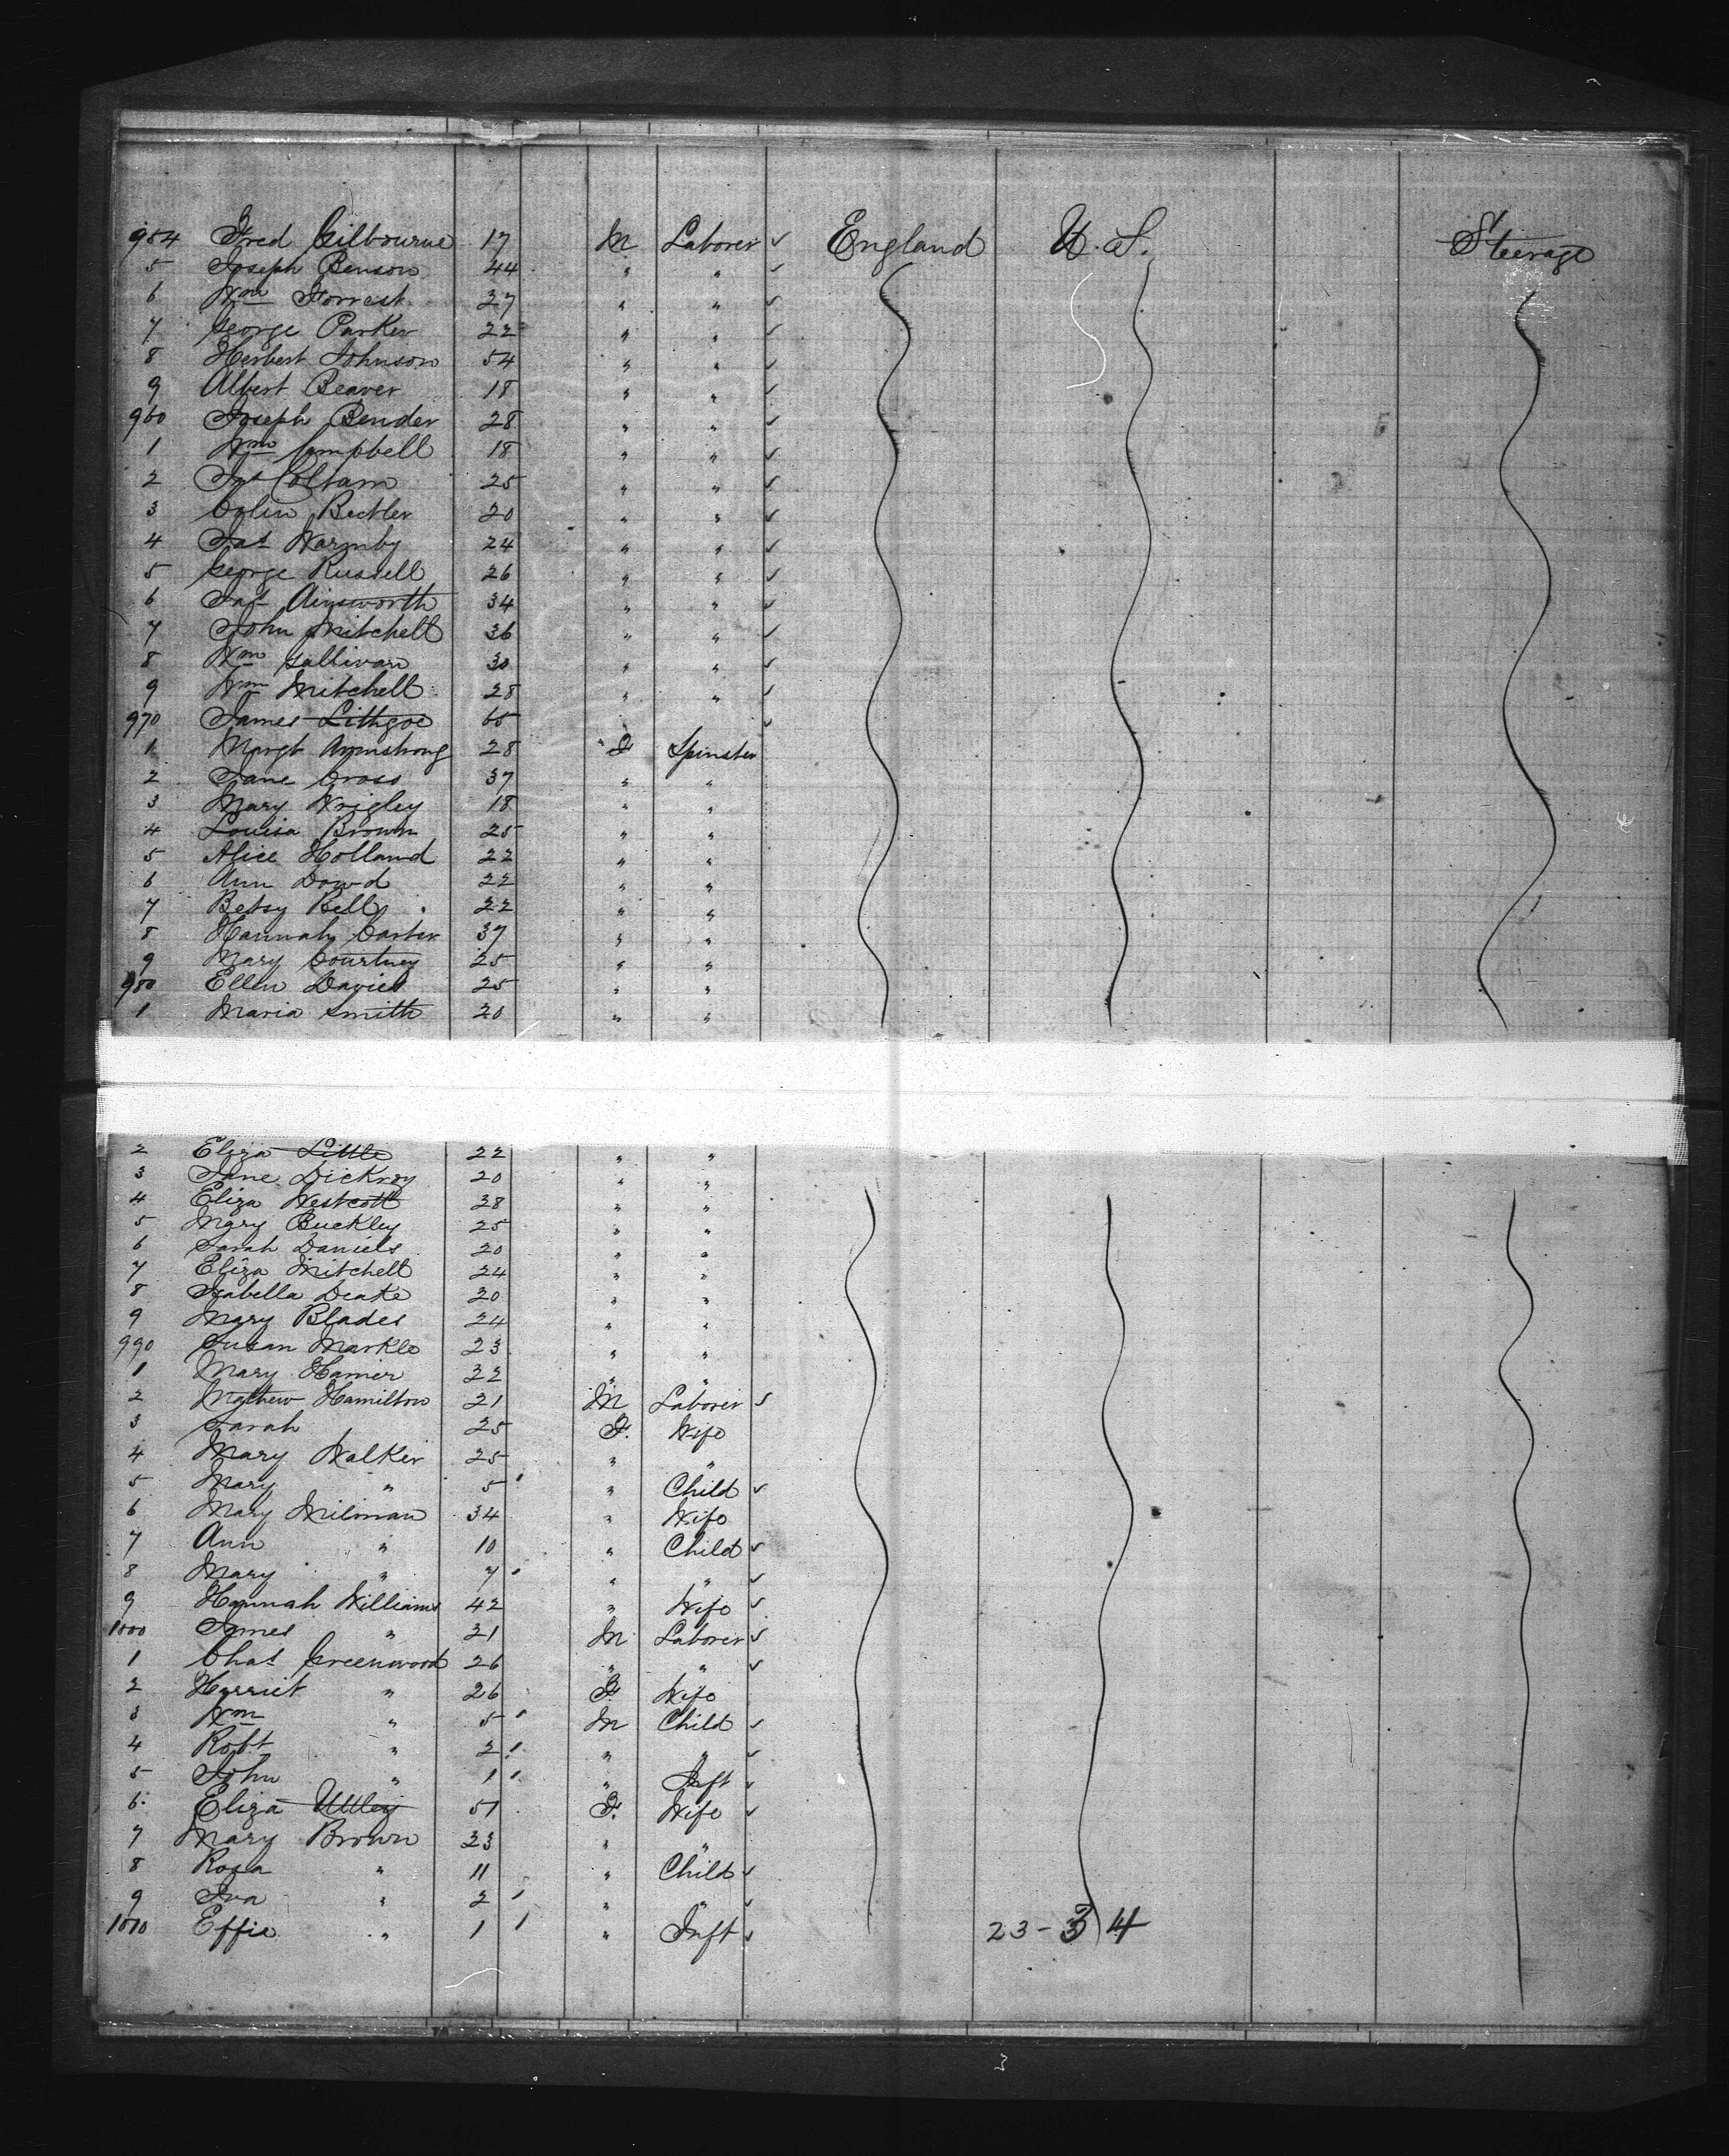 954 Fred Gilbourne 17 M Laborer ✓ England U.S. Steerage
5 Joseph Benson 44 " " ✓
6 Wm Forrest 27 " " ✓
7 George Parker 22 " " ✓
8 Herbert Johnson 54 " " ✓
9 Albert Beaver 18 " " ✓
960 Joseph Bender 28 " " ✓
1 Wm Campbell 18 " " ✓
2 Jas Coltam 25 " " ✓
3 Colin Butler 20 " " ✓
4 Jas Warmby 24 " " ✓
5 George Russell 26 " " ✓
6 Jas Ainsworth 34 " " ✓
7 John Mitchell 36 " " ✓
8 Wm Sallivan 30 " " ✓
9 Wm Mitchell 28 " " ✓
970 James Lithgoe 65 " " ✓
1 Margt Armstrong 28 F Spinster
2 Jane Cross 37 " "
3 Mary Wrigley 18 " "
4 Louisa Brown 25 " "
5 Alice Holland 22 " "
6 Ann Dowd 22 " "
7 Betsy Bell 22 " "
8 Hannah Carter 37 " "
9 Mary Courtney 25 " "
980 Ellen Davies 25 " "
1 Maria Smith 20 " "
2 Eliza Little 22 " "
3 Jane 20 " "
4 Eliza Westcott 38 " "
5 Mary Buckley 25 " "
6 Sarah Daniels 20 " "
7 Eliza Mitchell 24 " "
8 Isabella Deake 20 " "
9 Mary Blades 24 " "
990 Susan Markle 23 " "
1 Mary Hamer 22 " "
2 Mathew Hamilton 21 M Laborer ✓
3 Sarah 25 F. Wife
4 Mary Walker 25 " "
5 Mary " 5 " Child ✓
6 Mary Milman 34 " Wife
7 Ann " 10 " Child ✓
8 Mary " 7 " " ✓
9 Hannah Williams 42 " Wife ✓
1000 James " 21 M Laborer ✓
1 Chas Greenwood 26 " " ✓
2 Harriet " 26 F. Wife
3 Wm " 5 M Child ✓
4 Robt " 2 " " ✓
5 John " 1 " Inft ✓
6 Eliza Uttley 51 F. Wife ✓
7 Mary Brown 23 " "
8 Rosa " 11 " Child ✓
9 Iva " 2 " " ✓
1010 Effie " 1 " Inft ✓ 23-34
3